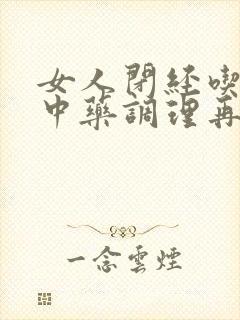 女人閉経喫
中藥調理再
一念雲煙